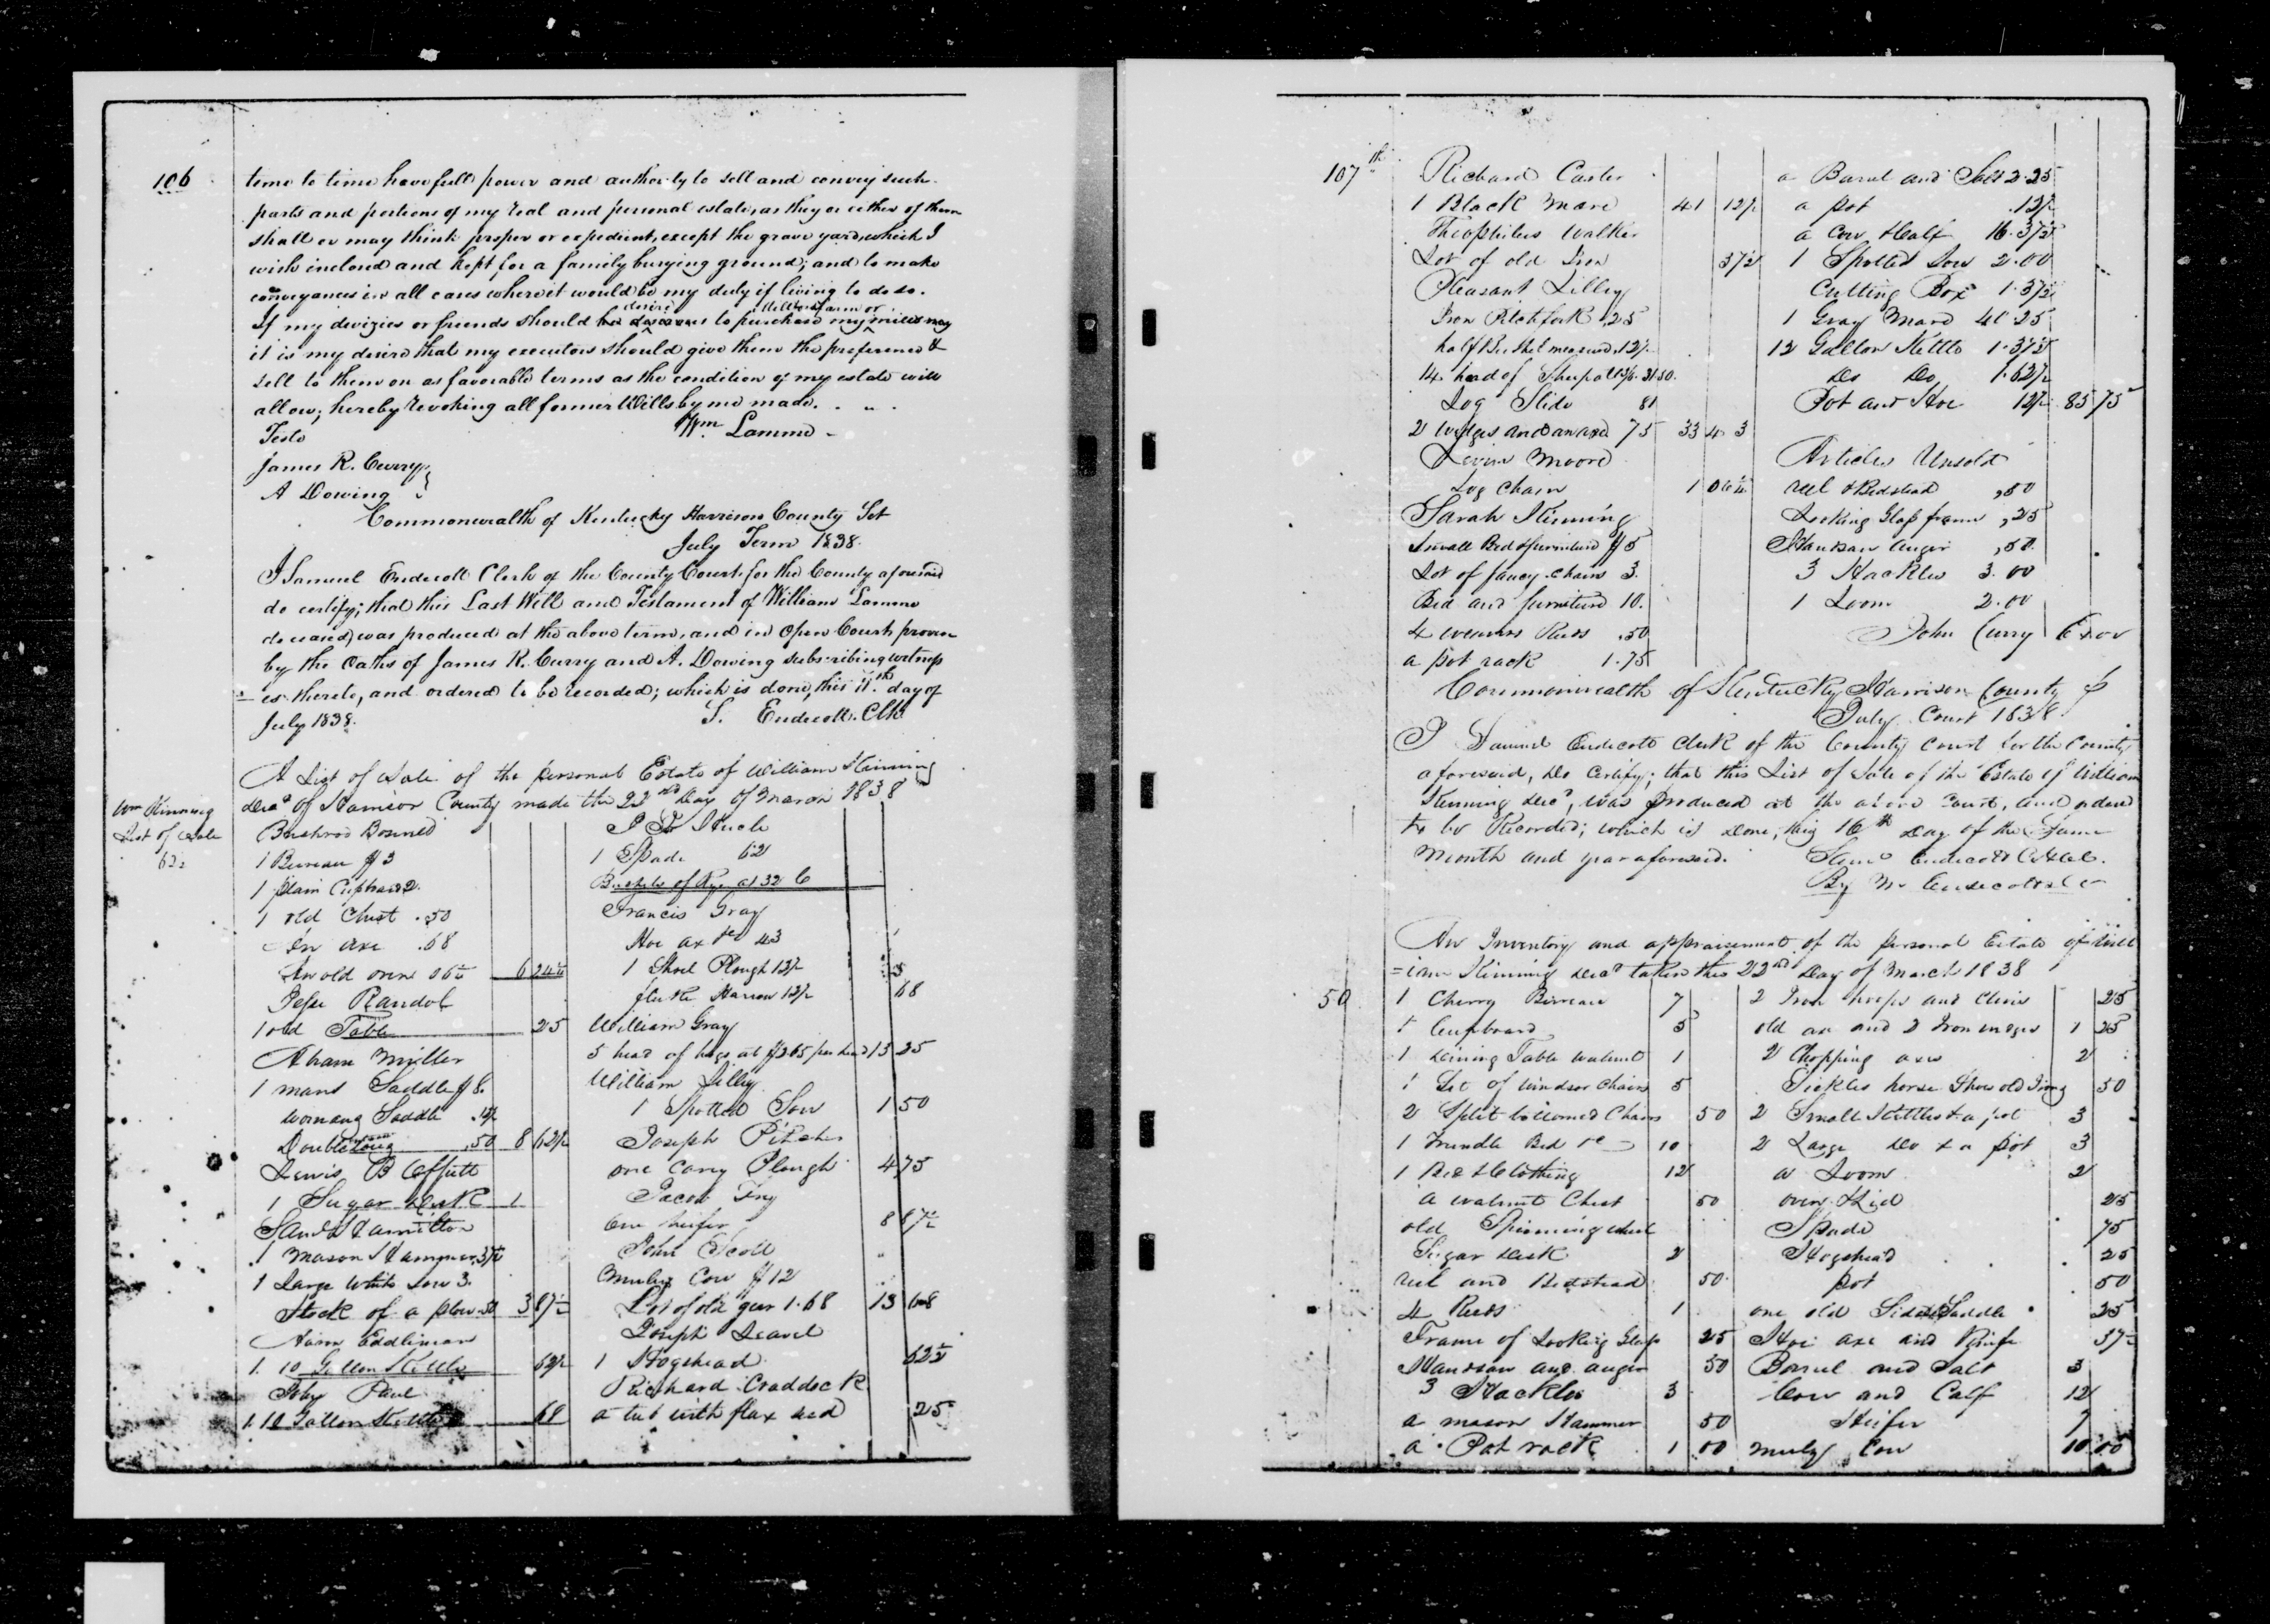 106
time to time have full power and authority to sell and convey such
parts and portions of my real and personal estate, as they or either of them
shall or may think proper or expedient, except the grave yard, which I
wish inclosed and kept for a family burying ground; and to make
conveyances in all cases where it would be my duty if living to do so.
If my devizies or friends should desire to purchase my farm or mills
it is my desire that my executors should give them the preference &
sell to them on as favorable terms as the condition of my estate will
allow; hereby revoking all former Wills by me made.
Teste
Wm Lamme
James R. Curry
A Dowing
Commonwealth of Kentucky Harrison County Sct
July Term 1838.
I Samuel Endicott Clerk of the County Court for the County aforesaid
do certify; that this Last Will and Testament of William Lamme
deceased, was produced at the above term, and in Open Court proven
by the Oaths of James R. Curry and A. Dowing subscribing witness
=es thereto, and ordered to be recorded; which is done, this 11th day of
July 1838.
S. Endicott. Clk
A List of Sale of the personal Estate of William Kinning
Decd of Harrison County made the 22nd Day of March 1838
Wm Kinning
List of Sale
62½
1 Bureau $3
1 plain Cupboard 2.
1 old Chest .50
An axe .68
An old oven 06¼ 6 24¼
Jesse Randol
1 old Table 25
Abram Miller
1 mans Saddle $8.
Womans Saddle .12½
Double .50 8 62½
Lewis B Offutt
1 Sugar Desk 1
Saml Hamilton
1 Mason Hammer .37½
1 Large White Sow 3.
Stock of a plow .50 3 87½
1. 10 Gallon Kettle 62½
John Paul
1. 10 Gallon Kettle 68
1 Spade 62
Bushels of Rye at 32 C
Francis Gray
Hoe ax &c 43
1 Shovel Plough 12½
Harrow 12½ 68
William Gray
5 head of hogs at $2.65 per head 13 25
William Lilley
1 Spotted Sow 1 50
Joseph Pitcher
one Cary Plough 4 75
Jacob Fry
One heifer 8 87½
John Scott
Muley Cow $12
Lot of old gear 1.68 13 68
Joseph Leavel
1 Hogshead 62½
Richard Craddock
a tub with flax seed 25
107th
Richard Carter
1 Black Mare 41 12½
Theophilus Walker
Lot of old Iron 37½
Pleasant Lilley
Iron Pitchfork .25
half Bushel measure .12½
14 head of Sheep 31.50.
Log Slide 81
2 wedges and an axe 75 33 4 3
Levin Moore
Log Chain 1 06¼
Sarah Kinning
Small Bed & furniture $5
Lot of fancy chairs 3.
Bed and furniture 10.
4 weavers Reeds .50
a pot rack 1.75
a Barrel and Salt 2.25
a pot .12½
a Cow & Calf 16.37½
1 Spotted Sow 2.00
Cutting Box 1.37½
1 Gray Mare 41.25
12 Gallon Kettle 1.37½
Do Do 1.62½
Pot and Hoe 12½ 85 75
Articles Unsold
reel & Bedstead ,50
Looking Glass frame ,25
Handsaw auger ,50.
3 Hackles 3.00
1 Loom 2.00
John Curry Exor
Commonwealth of Kentucky Harrison County
July Court 1838
I Samuel Endicott Clerk of the County Court for the County
aforesaid, do certify; that this List of Sale of the Estate of William
Kinning Decd, was produced at the above Court, and ordered
to be Recorded; which is Done, this 16th Day of the Same
Month and year aforesaid.
An Inventory and appraisement of the personal Estate of Will
=iam Kinning Decd taken this 22nd Day of March 1838
50
1 Cherry Bureau 7
1 Cupboard 5
1 Dining Table walnut 1
1 Set of Windsor Chairs 5
2 Split bottomed Chairs 50
1 Trundle Bed &c 10
1 Bed & Clothing 12
a walnut Chest 50
old Spinning wheel
Sugar desk 2
reel and Bedstead 50
4 Reeds 1
Frame of Looking Glass 25
Handsaw and auger 50
3 Hackles 3
a mason Hammer 50
a Pot rack 1 00
2 Iron hoops and Clevis 25
old ax and 2 Iron wedges 1 25
2 Chopping axes 2
Sickles horse Shoes old Irons 50
2 Small Kettles & a pot 3
2 Large Do & a pot 3
a Loom 2
oven & Lid 25
Spade 75
Hogshead 25
pot 50
one old Side Saddle 25
Hoe axe and Knife 37½
Barrel and Salt 3
Cow and Calf 12
Heifer 7
Muley Cow 10.00